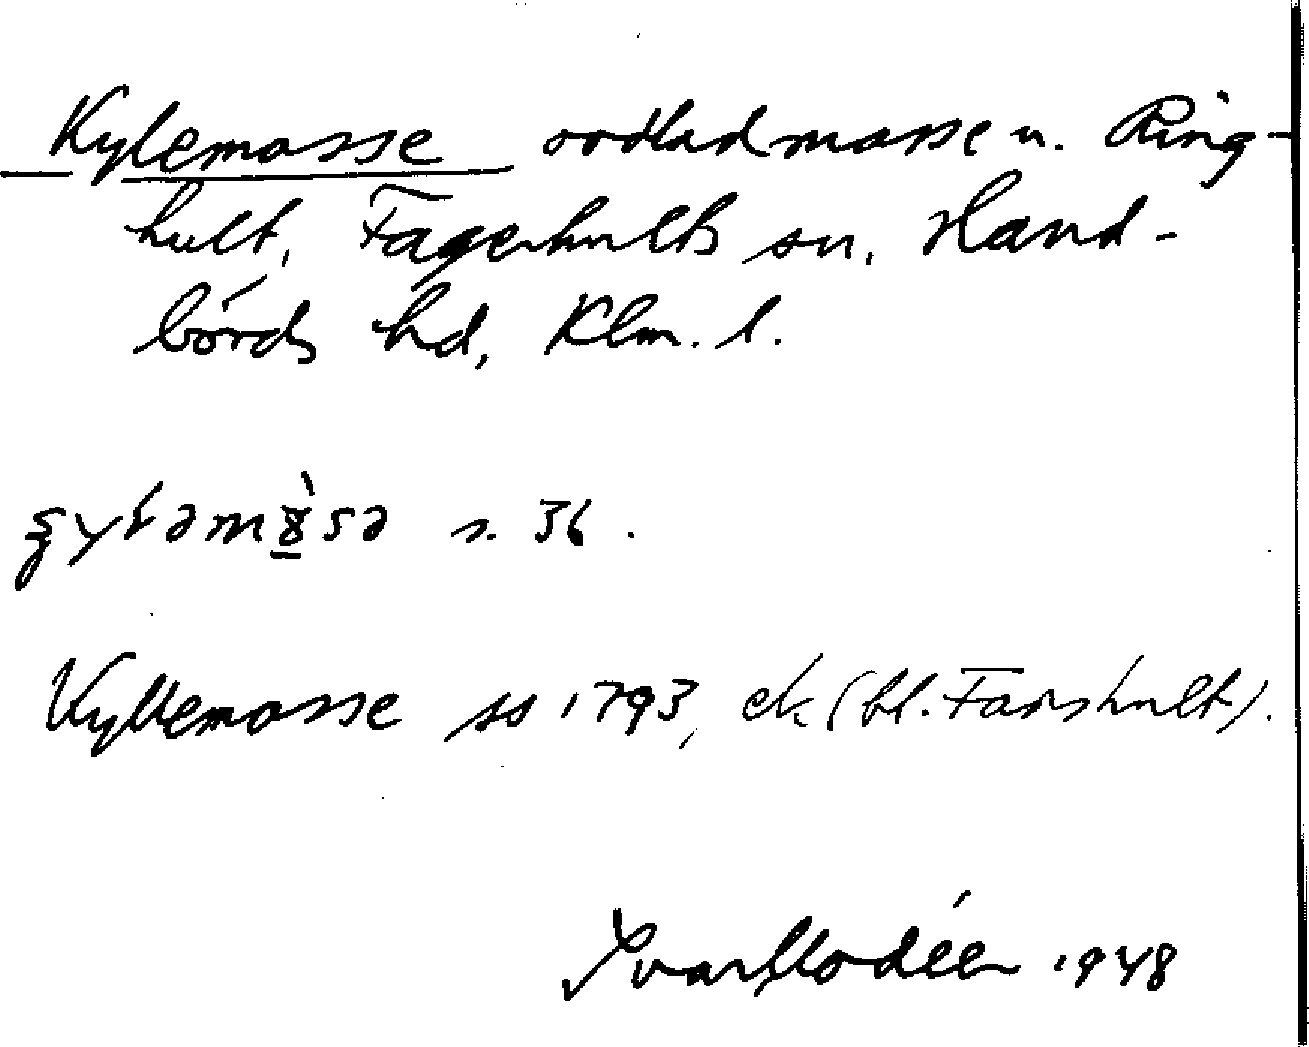 Kylemosse oodlad mosse u. Ring-
hult, Fagerhults sn, Hand-
börds hd, Klm. l.
s. 36.
Kyllemosse ss 1793, ck (bl. Farshult).
Ivar Modéer 1948